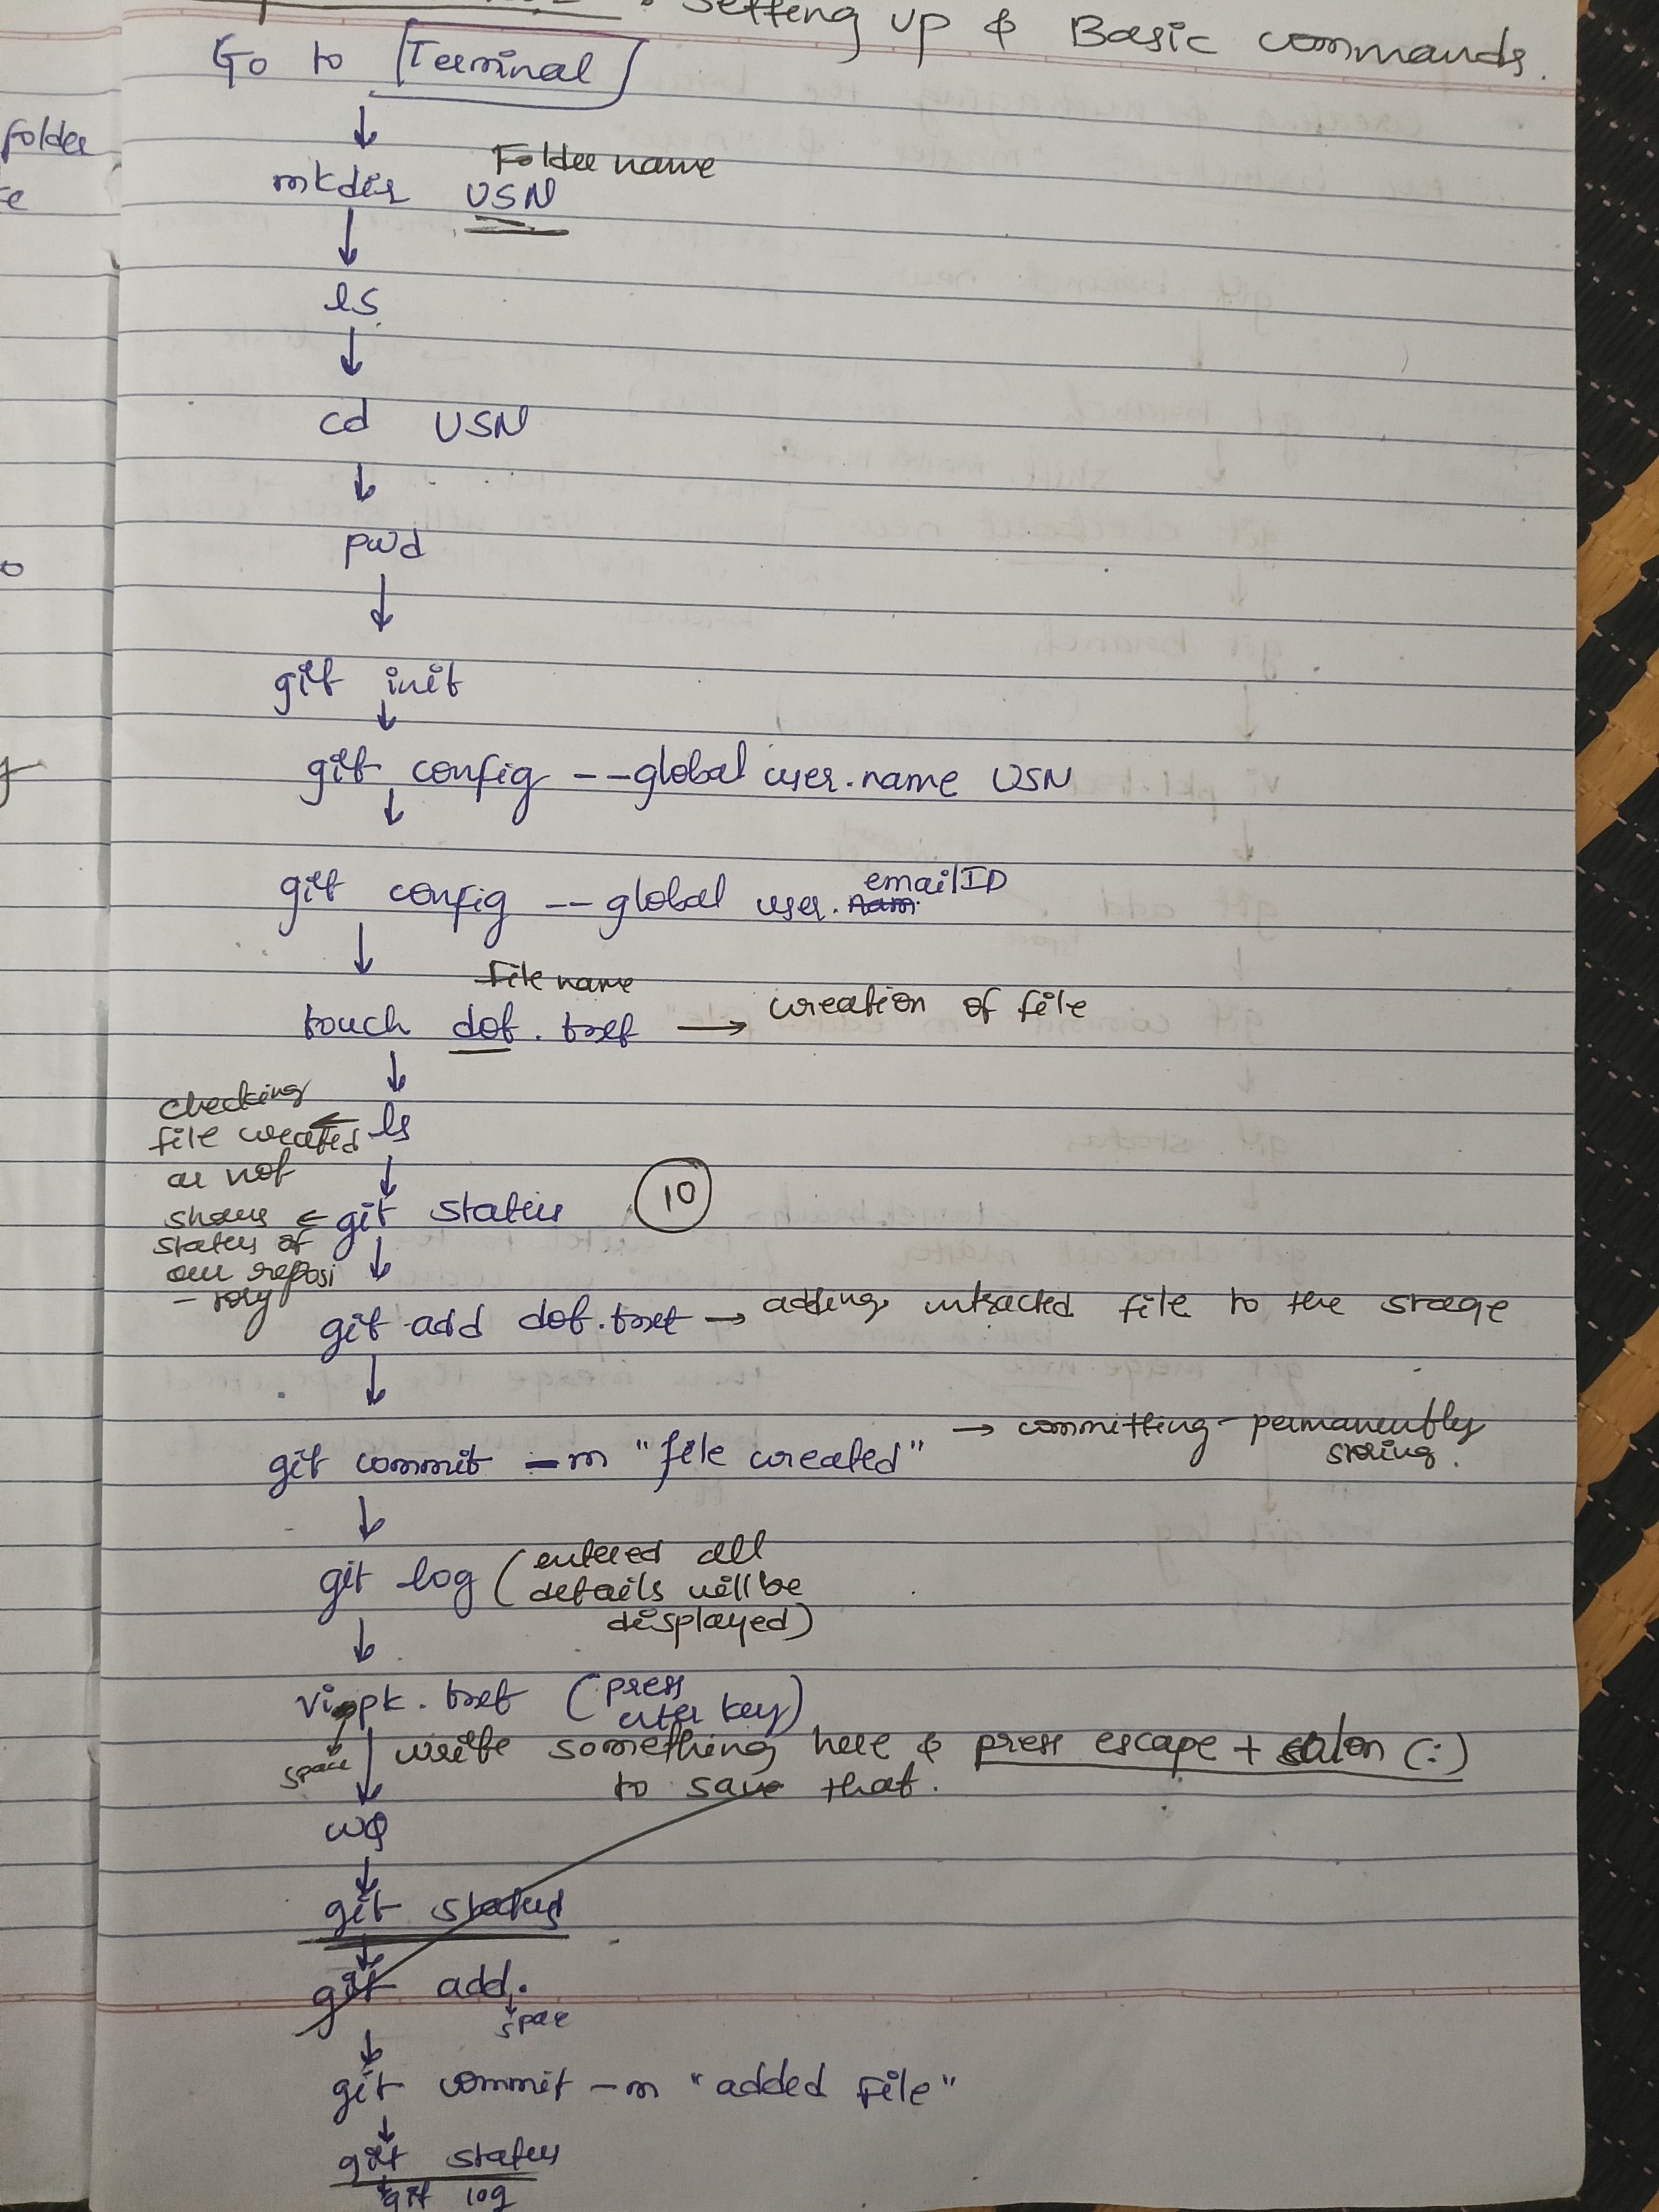 : Setting up & Basic commands.
Go to Terminal
Folder name
mkdir USN
ls
cd USN
pwd
git init
git config --global user.name USN
git config --global user.emailID
file name
touch dof.txt → creation of file
checking file created or not ← ls
git status
10
shows status of our reposi-tory
git add dof.txt → adding untracted file to the stage
git commit -m "file created" → committing - permanently storing.
git log (entered all details will be displayed)
vi pk.txt (press enter key)
space
write something here & press escape + colon (:)
to save that.
wq
git status
git add .
space
git commit -m "added file"
git status
git log
folder